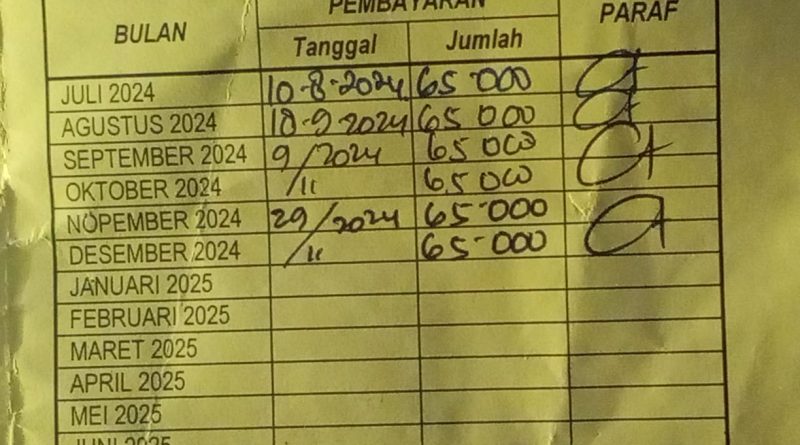 BULAN PEMBAYARAN PARAF
Tanggal Jumlah
JULI 2024 10-8-2024 65.000
AGUSTUS 2024 18-9-2024 65.000
SEPTEMBER 2024 9/2024 65 000
OKTOBER 2024 /11 65 000
NOPEMBER 2024 29/2024 65.000
DESEMBER 2024 /11 65.000
JANUARI 2025
FEBRUARI 2025
MARET 2025
APRIL 2025
MEI 2025
JUNI 2025